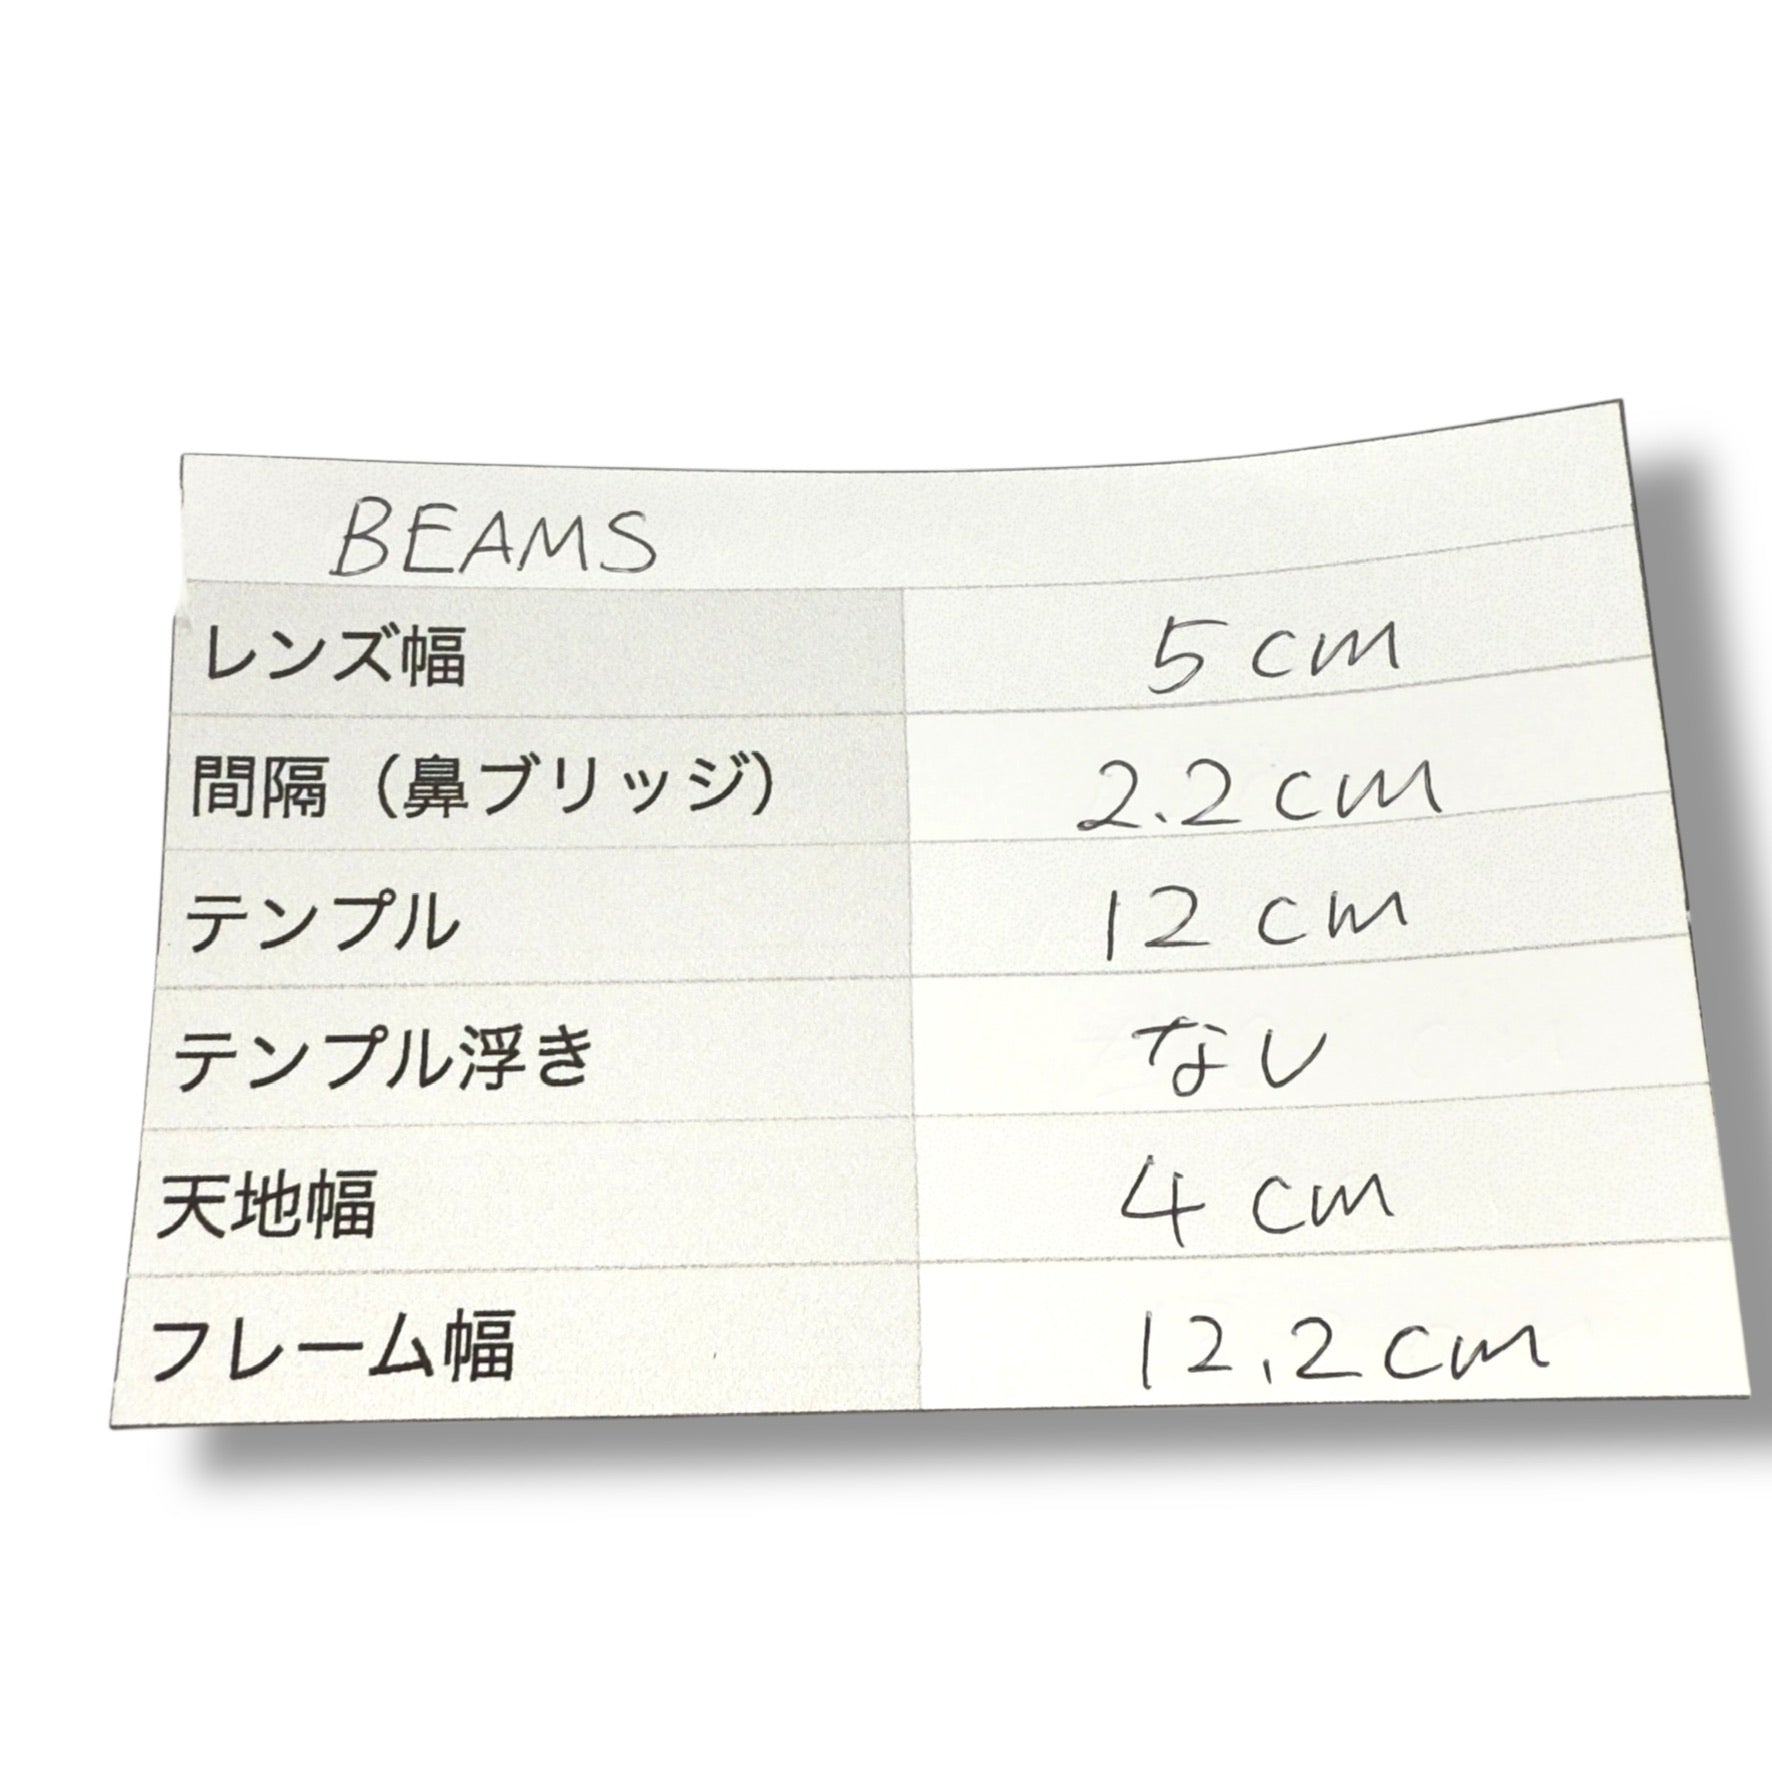 BEAMS
レンズ幅 5cm
間隔（鼻ブリッジ） 2.2cm
テンプル 12cm
テンプル浮き なし
天地幅 4cm
フレーム幅 12.2cm